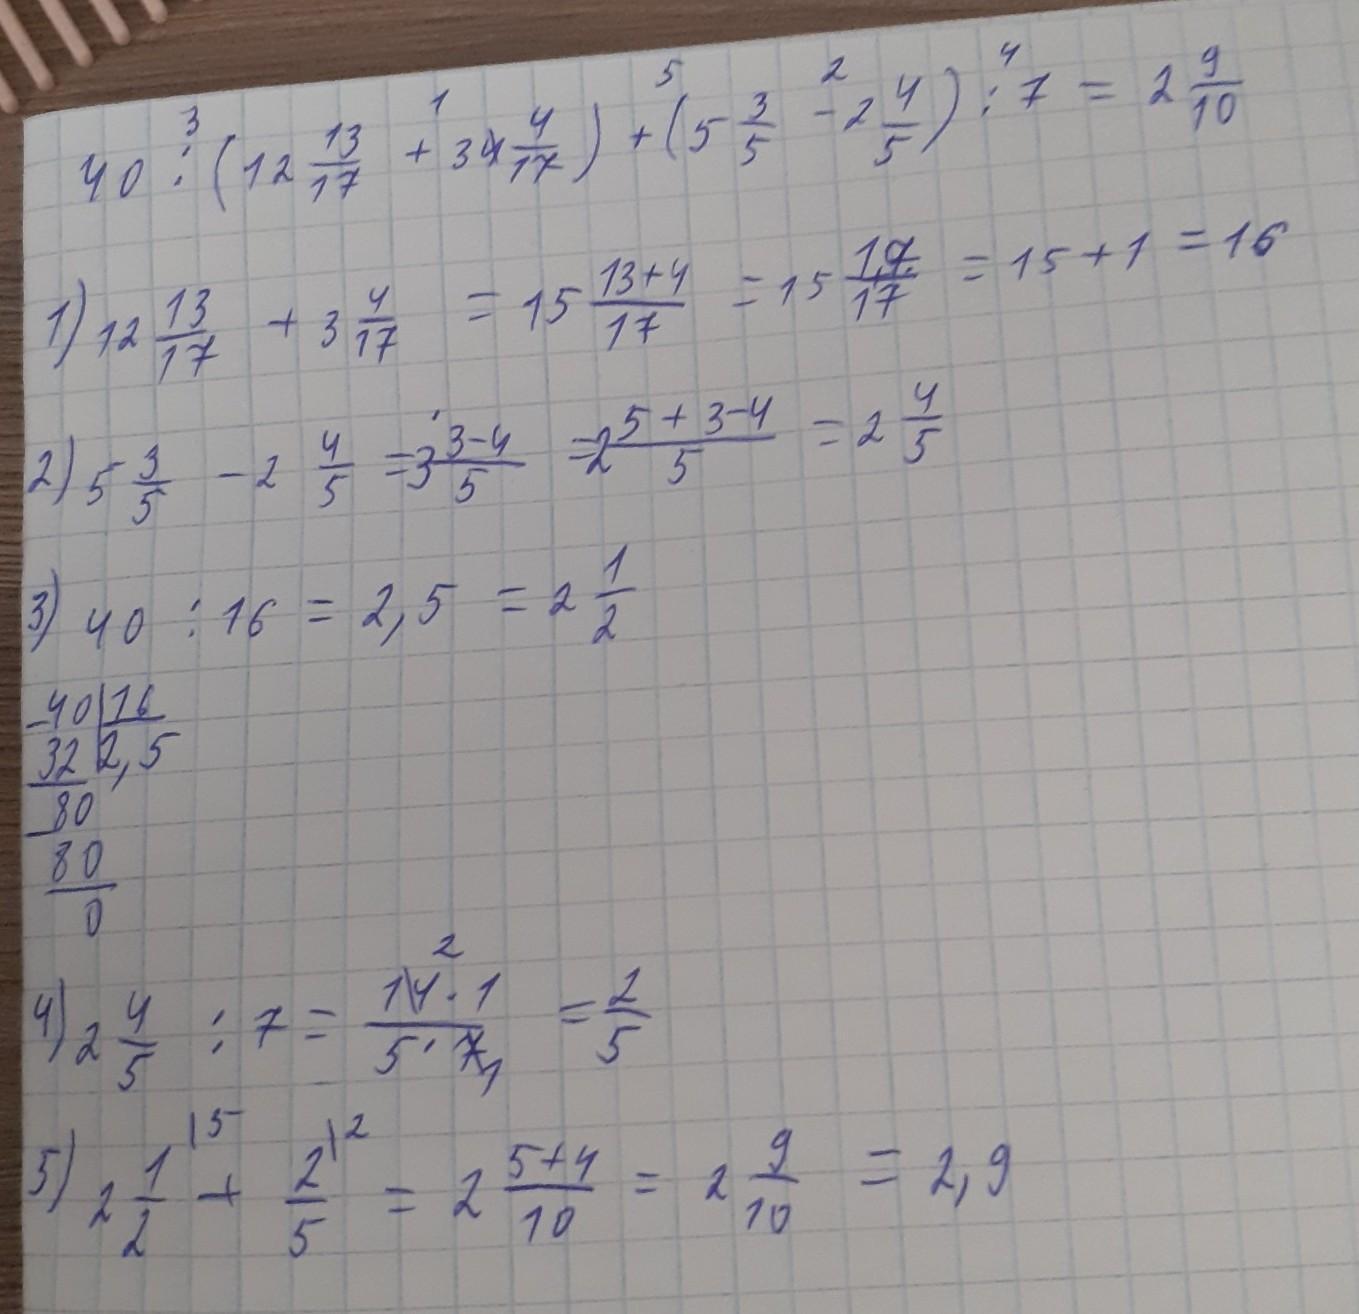 40 : (12 13/17 + 3 4/17) + (5 3/5 - 2 4/5) : 7 = 2 9/10
3 1 5 2 4
1) 12 13/17 + 3 4/17 = 15 (13+4)/17 = 15 17/17 = 15 + 1 = 16
2) 5 3/5 - 2 4/5 = 3 (3-4)/5 = 2 (5+3-4)/5 = 2 4/5
3) 40 : 16 = 2,5 = 2 1/2
-40|16
32|2,5
-80
80
0
4) 2 4/5 : 7 = (14·1)/(5·7) = 2/5
2 1
5) 2 1/2|5 + 2/5|2 = 2 (5+4)/10 = 2 9/10 = 2,9